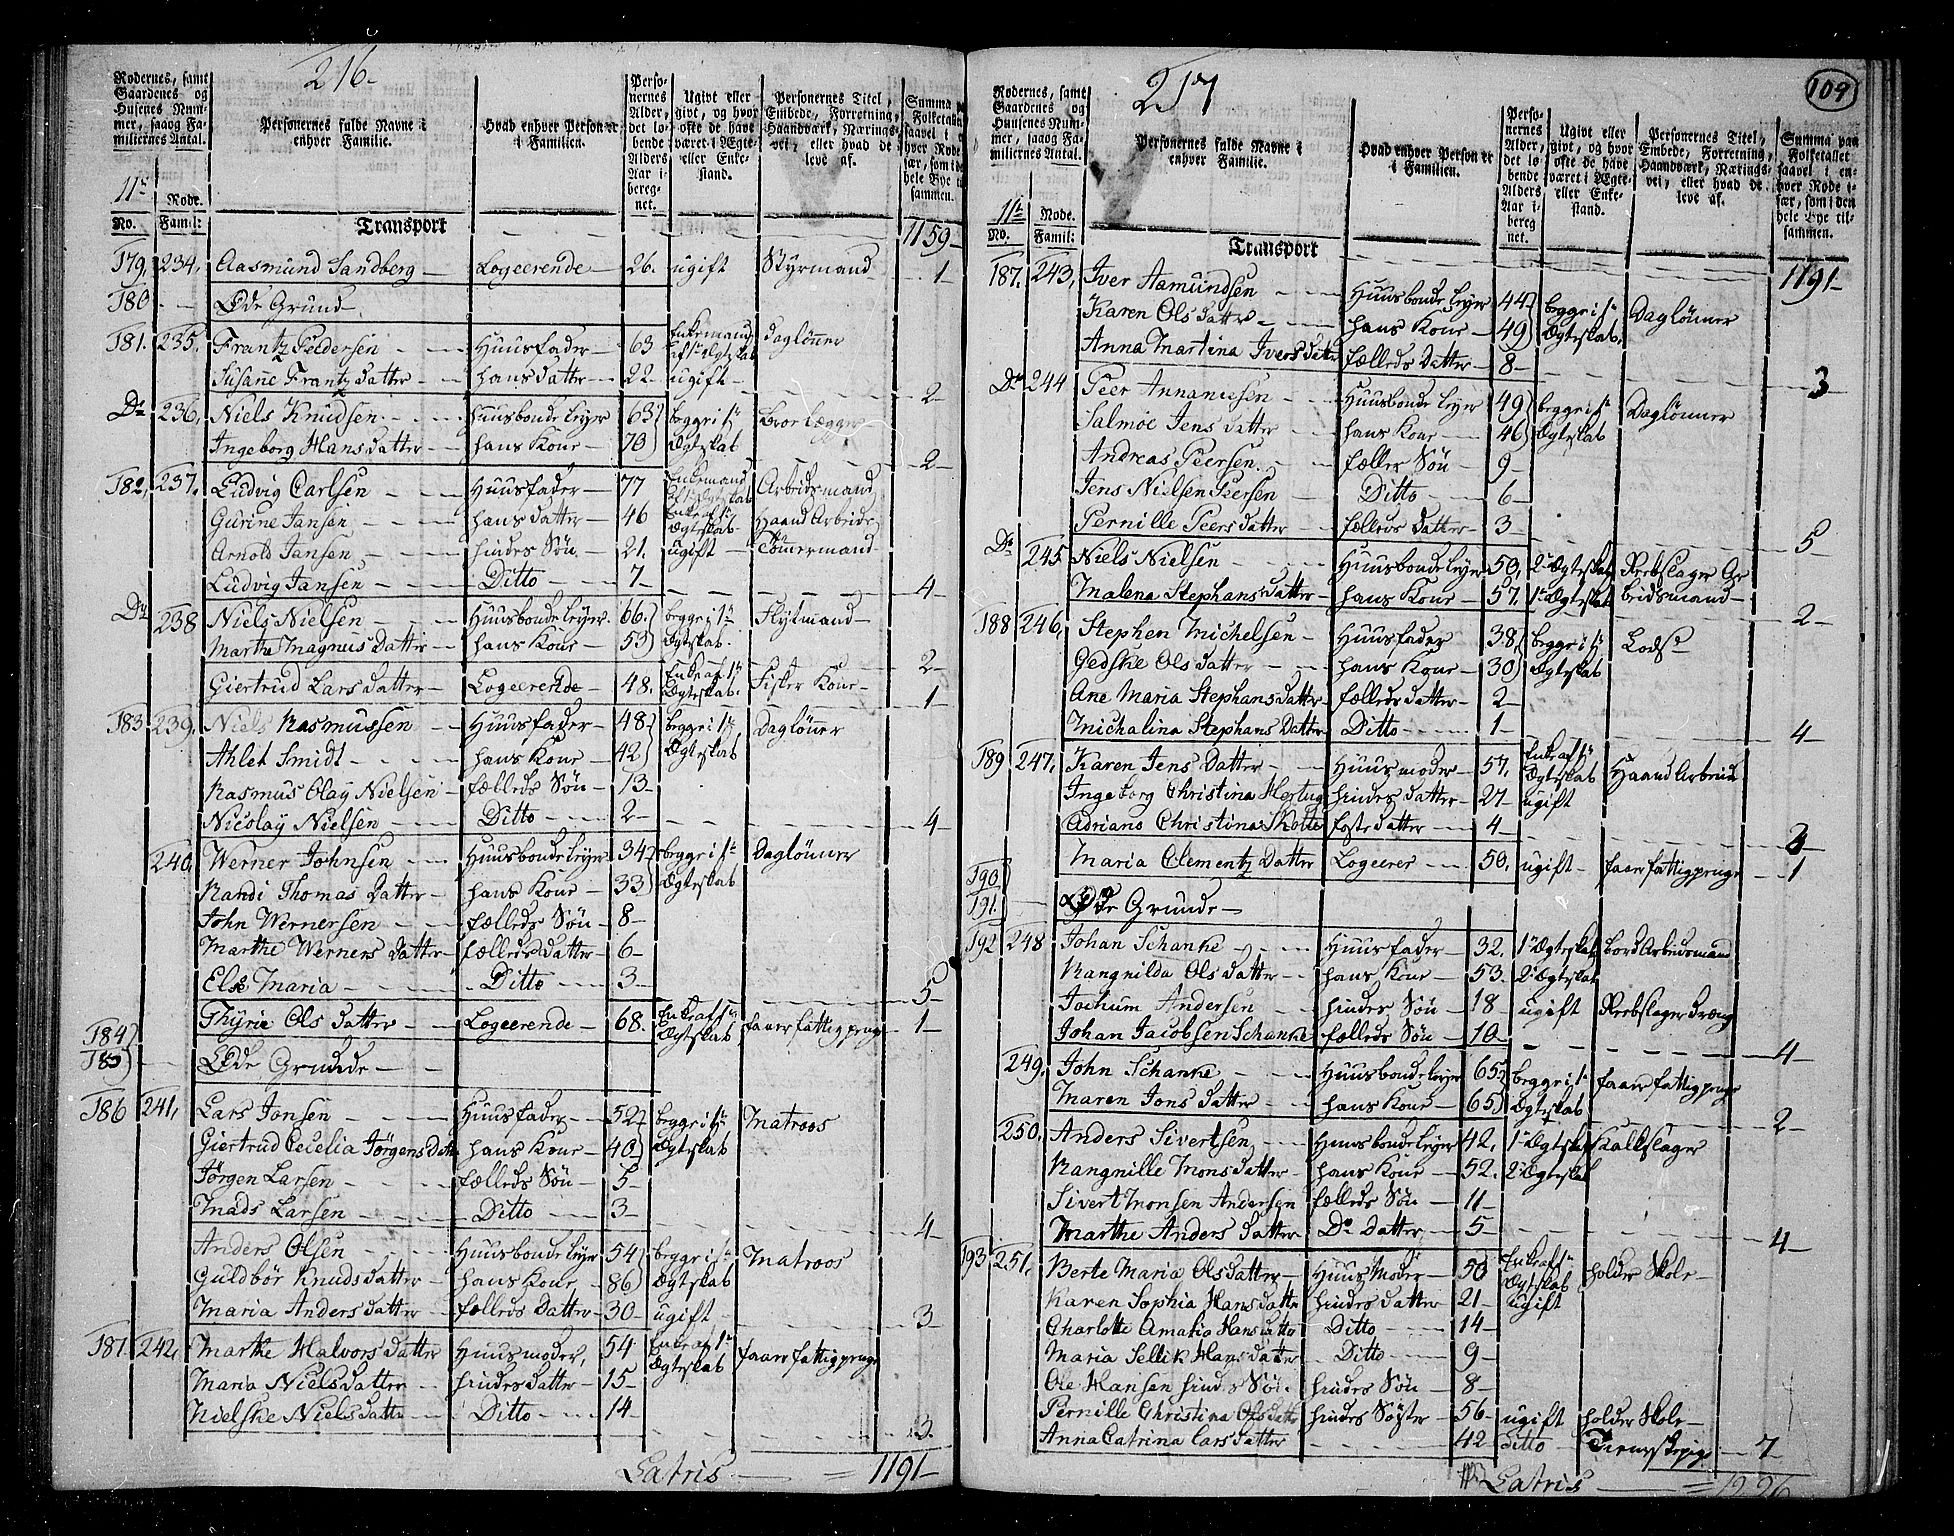 216-
Rodernes, samt Gaardenes og Husenes Nummer, saaog Familiernes Antal.
Personernes fulde Navne i enhver Familie.
Hvad enhver Person er i Familien.
Personernes Alder, det løbende Alders Aar iberegnet.
Ugivt eller givt, og hvor ofte de have været i Ægte- eller Enkestand.
Personernes Titel, Embede, Forretning, Haandværk, Næringsvei, eller hvad de leve af.
11te Rode.
No. Famil:
Transport 1159-
179. 234. Aasmund Sandberg Logeerende 26. ugift Styrmand 1
180 Øde Grund
181. 235. Frantz Peldersen Huusfader 63 Enkemand af 1te Ægteskab Daglønner
Susane Frantz datter hans datter 22 ugift 2
Do 236. Niels Knudsen Huusbonde leyer 68 begge i 1te Ægteskab Broelægger
Ingeborg Hans datter hans Kone 70 2
182. 237. Ludvig Carlsen Huusfader 77 Enkemand af 1te Ægteskab Arbeidsmand
Gurine Jansen hans datter 46 Enke af 1te Ægteskab Haand Arbeide
Arnold Jansen hindes Søn 21. ugift Tømermand
Ludvig Jansen Ditto 7 4
Do 238 Niels Nielsen Huusbonde leyer 66. begge i 1te Ægteskab Flytmand
Marthe Magnus Datter hans Kone 53 2
Giertrud Lars datter Logeerende 48. Enke af 1te Ægteskab. Fisker Kone 1
183 239. Niels Rasmussen Huusfader 48 begge i 1te Ægteskab Daglønner
Ahlet Smidt hans Kone 42
Rasmus Olay Nielsen fælleds Søn 13
Nicolay Nielsen Ditto 2 4
240. Werner Johnsen Huusbonde leyer 34 begge i 1te Ægteskab Daglønner
Randi Thomas Datter hans Kone 33
John Wernersen fælleds Søn 8
Marthe Werners Datter fælleds datter 6
Else Maria Ditto 3 5
Thyrie Ols datter Logeerende 68. Enke af 1te Ægteskab faaer fattigpenge 1
184)
185) Øde Grunde
186 241. Lars Jonsen Huusfader 52 begge i 1te Ægteskab Matroos
Giertrud Cecelia Jørgens Datter hans Kone 40
Jørgen Larsen fælleds Søn 5
Mads Larsen Ditto 3 4
Anders Olsen Huusbonde leyer 54 begge i 1te Ægteskab Matroos
Guldbør Knuds datter hans Kone 86
Maria Anders datter fælleds Datter 30 ugift 3
181. 242. Marthe Halvors datter Huusmoder. 54 Enke af 1te Ægteskab faaer fattigpenge
Maria Niels datter hindes datter 15
Nielske Niels datter Ditto 14 3
Latris 1191
217
109
Rodernes, samt Gaardenes og Huusenes Nummer, saaog Familiernes Antal.
Personernes fulde Navne i enhver Familie.
Hvad enhver Person er i Familien.
Personernes Alder, det løbende Alders Aar iberegnet.
Ugivt eller givt, og hvor ofte de have været i Ægte- eller Enkestand.
Personernes Titel, Embede, Forretning, Haandværk, Næringsvei, eller hvad de leve af.
Summa paa Folketallet saavel i enhver Rode især, som i den hele Bye tilsammen.
11te Rode.
No. Famil:
Transport 1191
187. 243. Iver Aamundsen Huusbonde leyer 44 begge i 1te Ægteskab. Daglønner
Karen Ols datter hans Kone 49
Anna Martina Ivers datter fælleds Datter 8 3
Do 244 Peer Annaniesen Huusbonde leyer 49 begge i 1te Ægteskab Daglønner
Salmoe Jens datter hans Kone 46
Andreas Peersen fælles Søn 9
Jens Nielsen Peersen Ditto 6
Pernille Peers datter fælleds datter 3 5
Do 245 Niels Nielsen Huusbonde leyer 50. 2de Ægteskab Reebslager Arbeidsmand
Malena Stephans datter hans Kone 57. 1te Ægteskab 2
188 246. Stephen Michelsen Huusfader 38. begge i 1te Ægteskab Lods
Gedske Ols datter hans Kone 30
Ane Maria Stephans datter fælleds datter 2
Michalina Stephans Datter Ditto 1 4
189 247. Karen Jens Datter Huusmoder 57. Enke af 1te Ægteskab Haand Arbeide
Ingeborg Christina Hertug hindes datter 27 ugift
Adriane Christina Skotte foste datter 4 3
Maria Clementz Datter Logeerer 50. ugift faaer fattigpenge 1
190)
191) Øde Grunde
192 248 Johan Schanke Huusfader 32. 1te Ægteskab bordArbeidsmand
Rangnilda Ols datter hans Kone 53. 2de Ægteskab
Jochum Andersen hindes Søn 18 ugift Reebslager dreng
Johan Jacobsen Schanke fælleds Søn 10 4
249. John Schanke Huusbonde leyer 65 begge i 1te Ægteskab faaer fattigpenge
Maren Jons datter hans Kone 65 2
250. Anders Sivertsen Huusbonde leyer 42. 1te Ægteskab Kalkslager
Rangnille Mons datter hans Kone 52. 2de Ægteskab
Sivert Monsen Andersen fælleds Søn 11
Marthe Anders datter Do Datter 5 4
193 251. Berte Maria Ols datter Huus Moder 50 Enke af 1te Ægteskab holder Skole
Karen Sophia Hans datter hindes datter 21 ugift
Charlotte Amalia Hans datter Ditto 14
Maria Sellik Hans datter Ditto 9
Ole Hansen hindes Søn. hindes Søn 8
Pernille Christina Ols datter hindes Søster 56 ugift holder Skole
Anna Catrina Lars datter 42 Ditto Tienestepige 7
Latris 1226